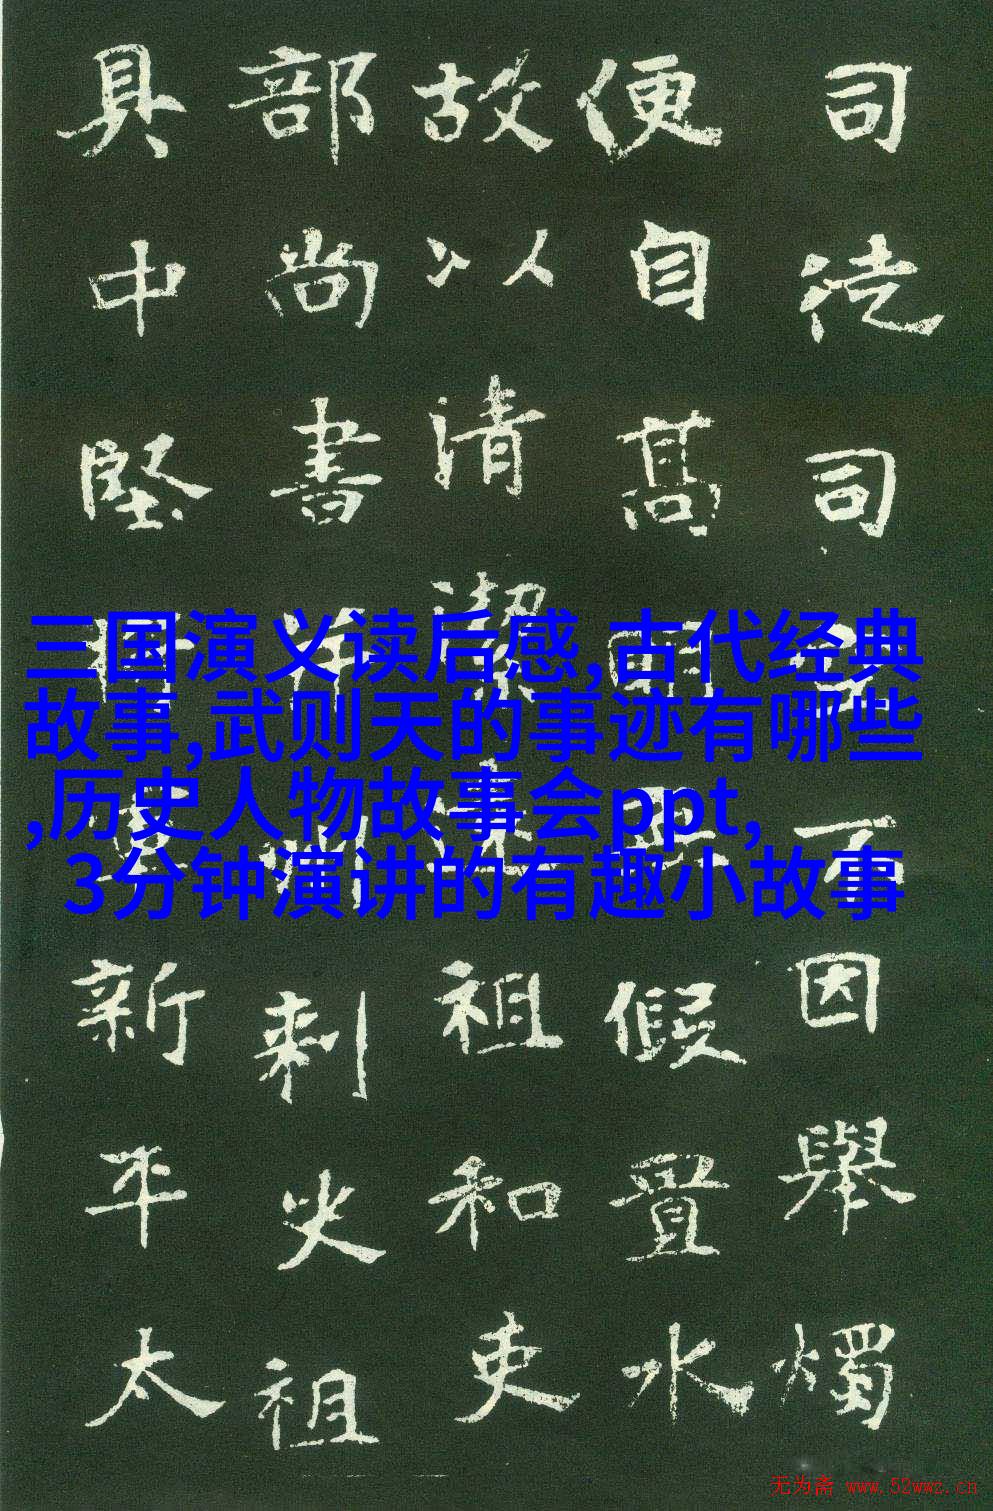 司徒司因舉燭
便自高假置水
故以清潔祖和吏
部尚書刺史祖
具中堅新平太
三国演义读后感,古代经典
故事,武则天的事迹有哪些
,历史人物故事会ppt,
3分钟演讲的有趣小故事
无为斋 www.52wwz.cn